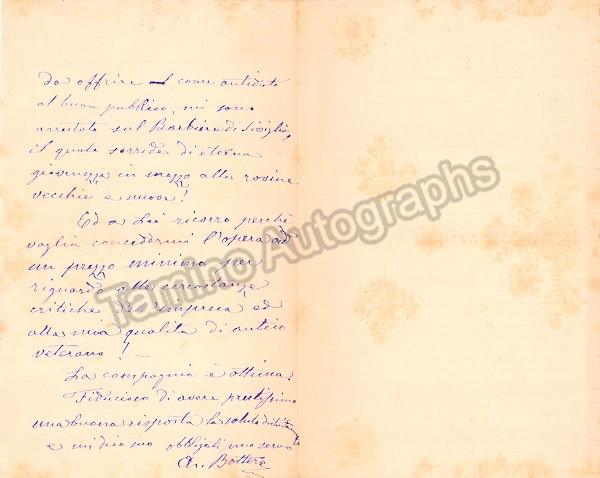 da offrire come antidoto
al buon pubblico, mi sono
arrestato sul Barbiere di Siviglia,
il quale sorride di eterna
giovinezza in mezzo alle rovine
vecchie e nuove!
Ed a Lei ricorro perchè
voglia concedermi l'opera ad
un prezzo minimo per
riguardo alle circostanze
critiche dell'impresa ed
alla mia qualità di antico
veterano! —
La compagnia è ottima!
Fiducioso di avere prestissimo
una buona risposta la saluto
e mi dico suo obbl. servo
A. Bottero
Tamino Autographs